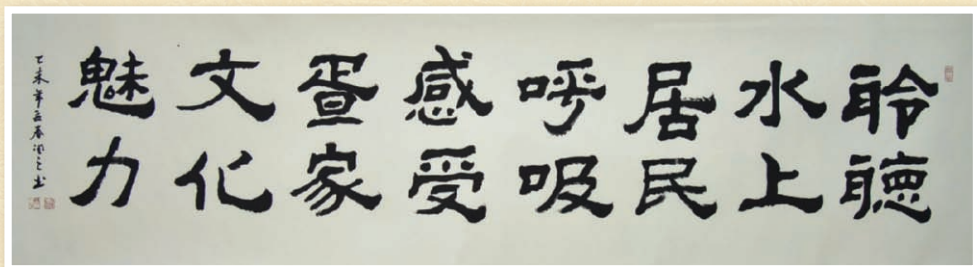 聆聽
水上
居民
呼吸
感受
疍家
文化
魅力
乙未年